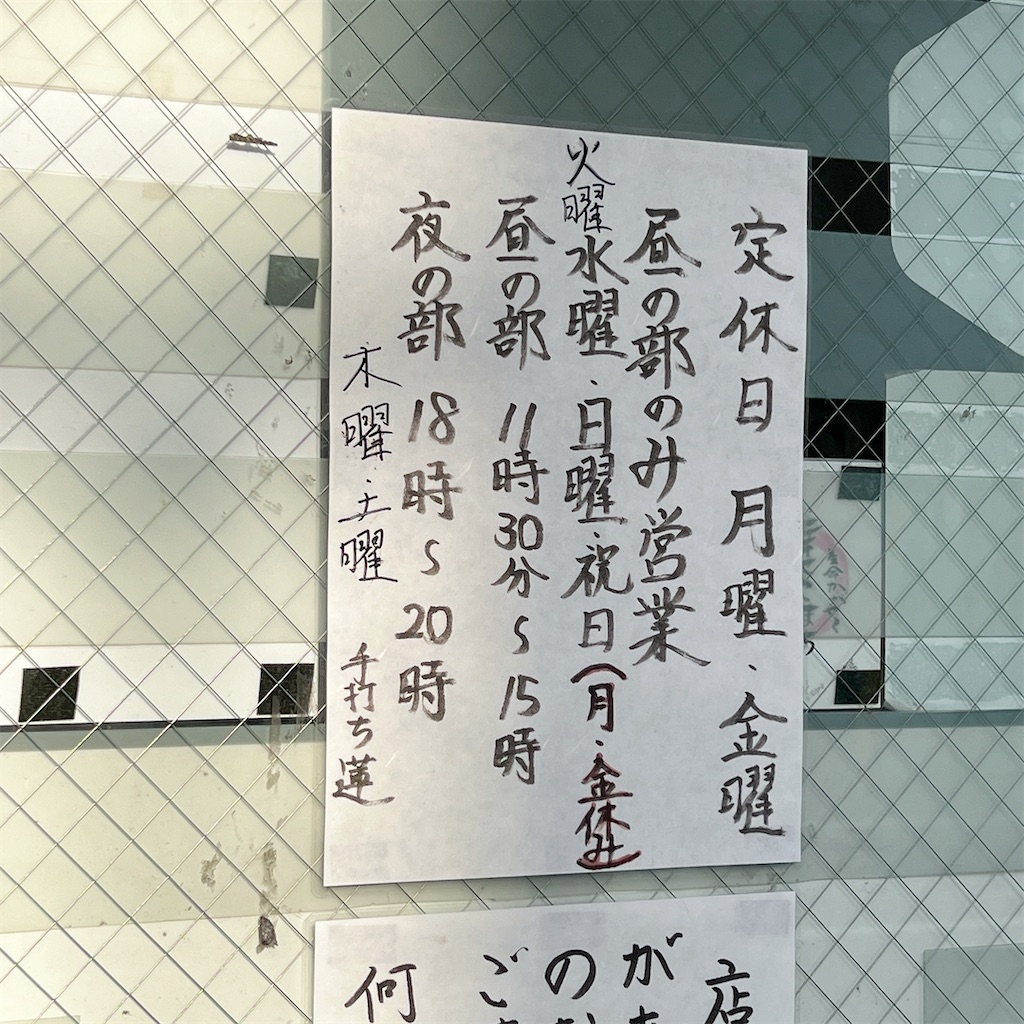 定休日 月曜・金曜
昼の部のみ営業
火曜水曜・日曜・祝日(月・金休み)
昼の部 11時30分~15時
夜の部 18時~20時
木曜・土曜 手打ち蓮
店
が
の
ご
何